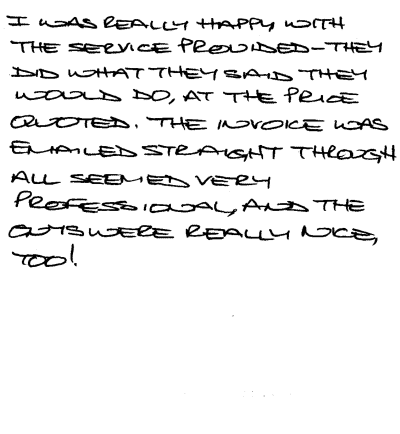 I WAS REALLY HAPPY WITH
THE SERVICE PROVIDED-THEY
DID WHAT THEY SAID THEY
WOULD DO, AT THE PRICE
QUOTED. THE INVOICE WAS
EMAILED STRAIGHT THROUGH
ALL SEEMED VERY
PROFESSIONAL, AND THE
GUYS WERE REALLY NICE,
TOO!